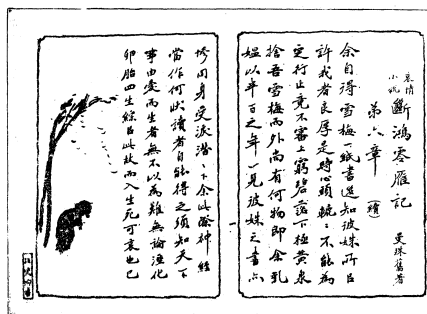 哀情小說
斷鴻零雁記
曼殊舊著
第六章（續）
余自得雪梅一紙書遂知彼姝所以
許我者良厚是時心頭轆〻不能為
定行止竟不審上窮碧落下極黃泉
捨吾雪梅而外尚有何物即余乳
媼以半百之年一見彼姝之書亦
慘同身受淚潸〻下余此際神經
當作何狀讀者自能得之須知天下
事由愛而生者無不以為難無論濕化
卵胎四生綜以此故而入生死可哀也已